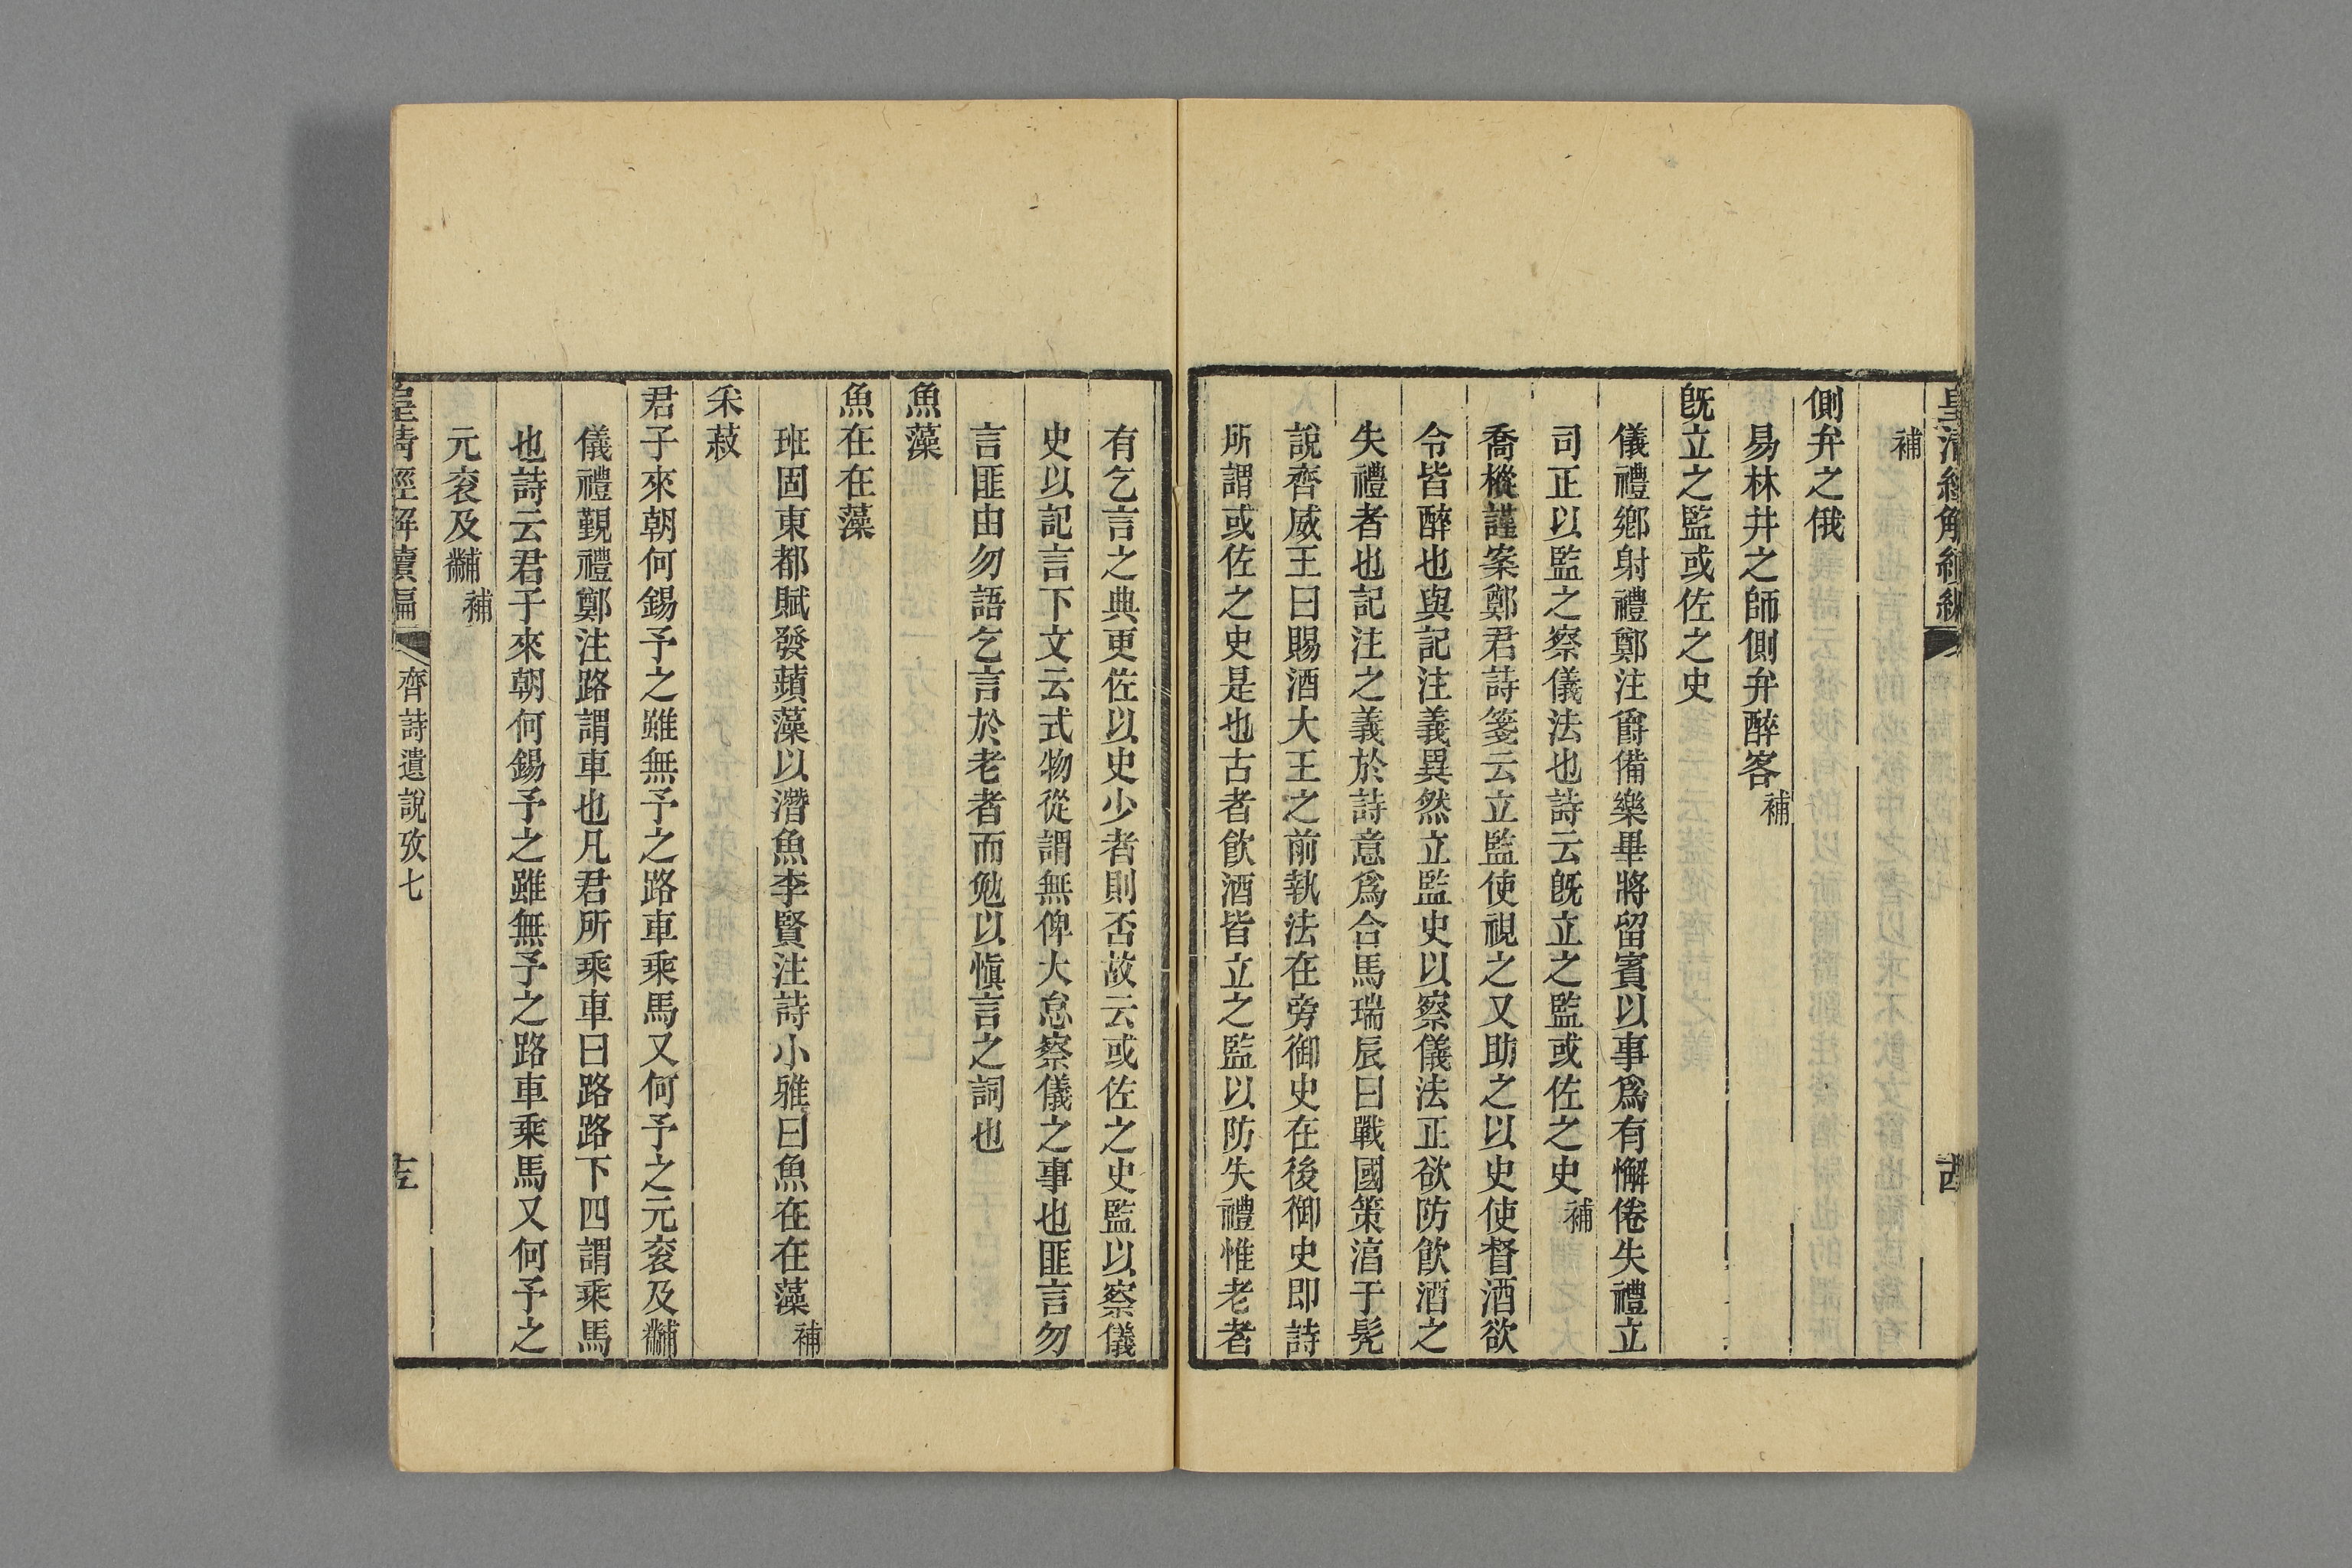 皇清經解續編
補
側弁之俄
易林井之師側弁醉客補
旣立之監或佐之史
儀禮鄉射禮鄭注爵備樂畢將留賓以事爲有懈倦失禮立
司正以監之察儀法也詩云旣立之監或佐之史補
喬樅謹案鄭君詩箋云立監使視之又助之以史使督酒欲
令皆醉也與記注義異然立監史以察儀法正欲防飮酒之
失禮者也記注之義於詩意爲合馬瑞辰曰戰國策湻于髠
說齊威王曰賜酒大王之前執法在旁御史在後御史即詩
所謂或佐之史是也古者飮酒皆立之監以防失禮惟老者
有乞言之典更佐以史少者則否故云或佐之史監以察儀
史以記言下文云式物從謂無俾大怠察儀之事也匪言勿
言匪由勿語乞言於老者而勉以愼言之詞也
魚藻
魚在在藻
班固東都賦發蘋藻以潛魚李賢注詩小雅曰魚在在藻補
采菽
君子來朝何錫予之雖無予之路車乘馬又何予之元衮及黼
儀禮覲禮鄭注路謂車也凡君所乘車曰路路下四謂乘馬
也詩云君子來朝何錫予之雖無予之路車乘馬又何予之
元衮及黼補
皇清經解續編 齊詩遺說攷七